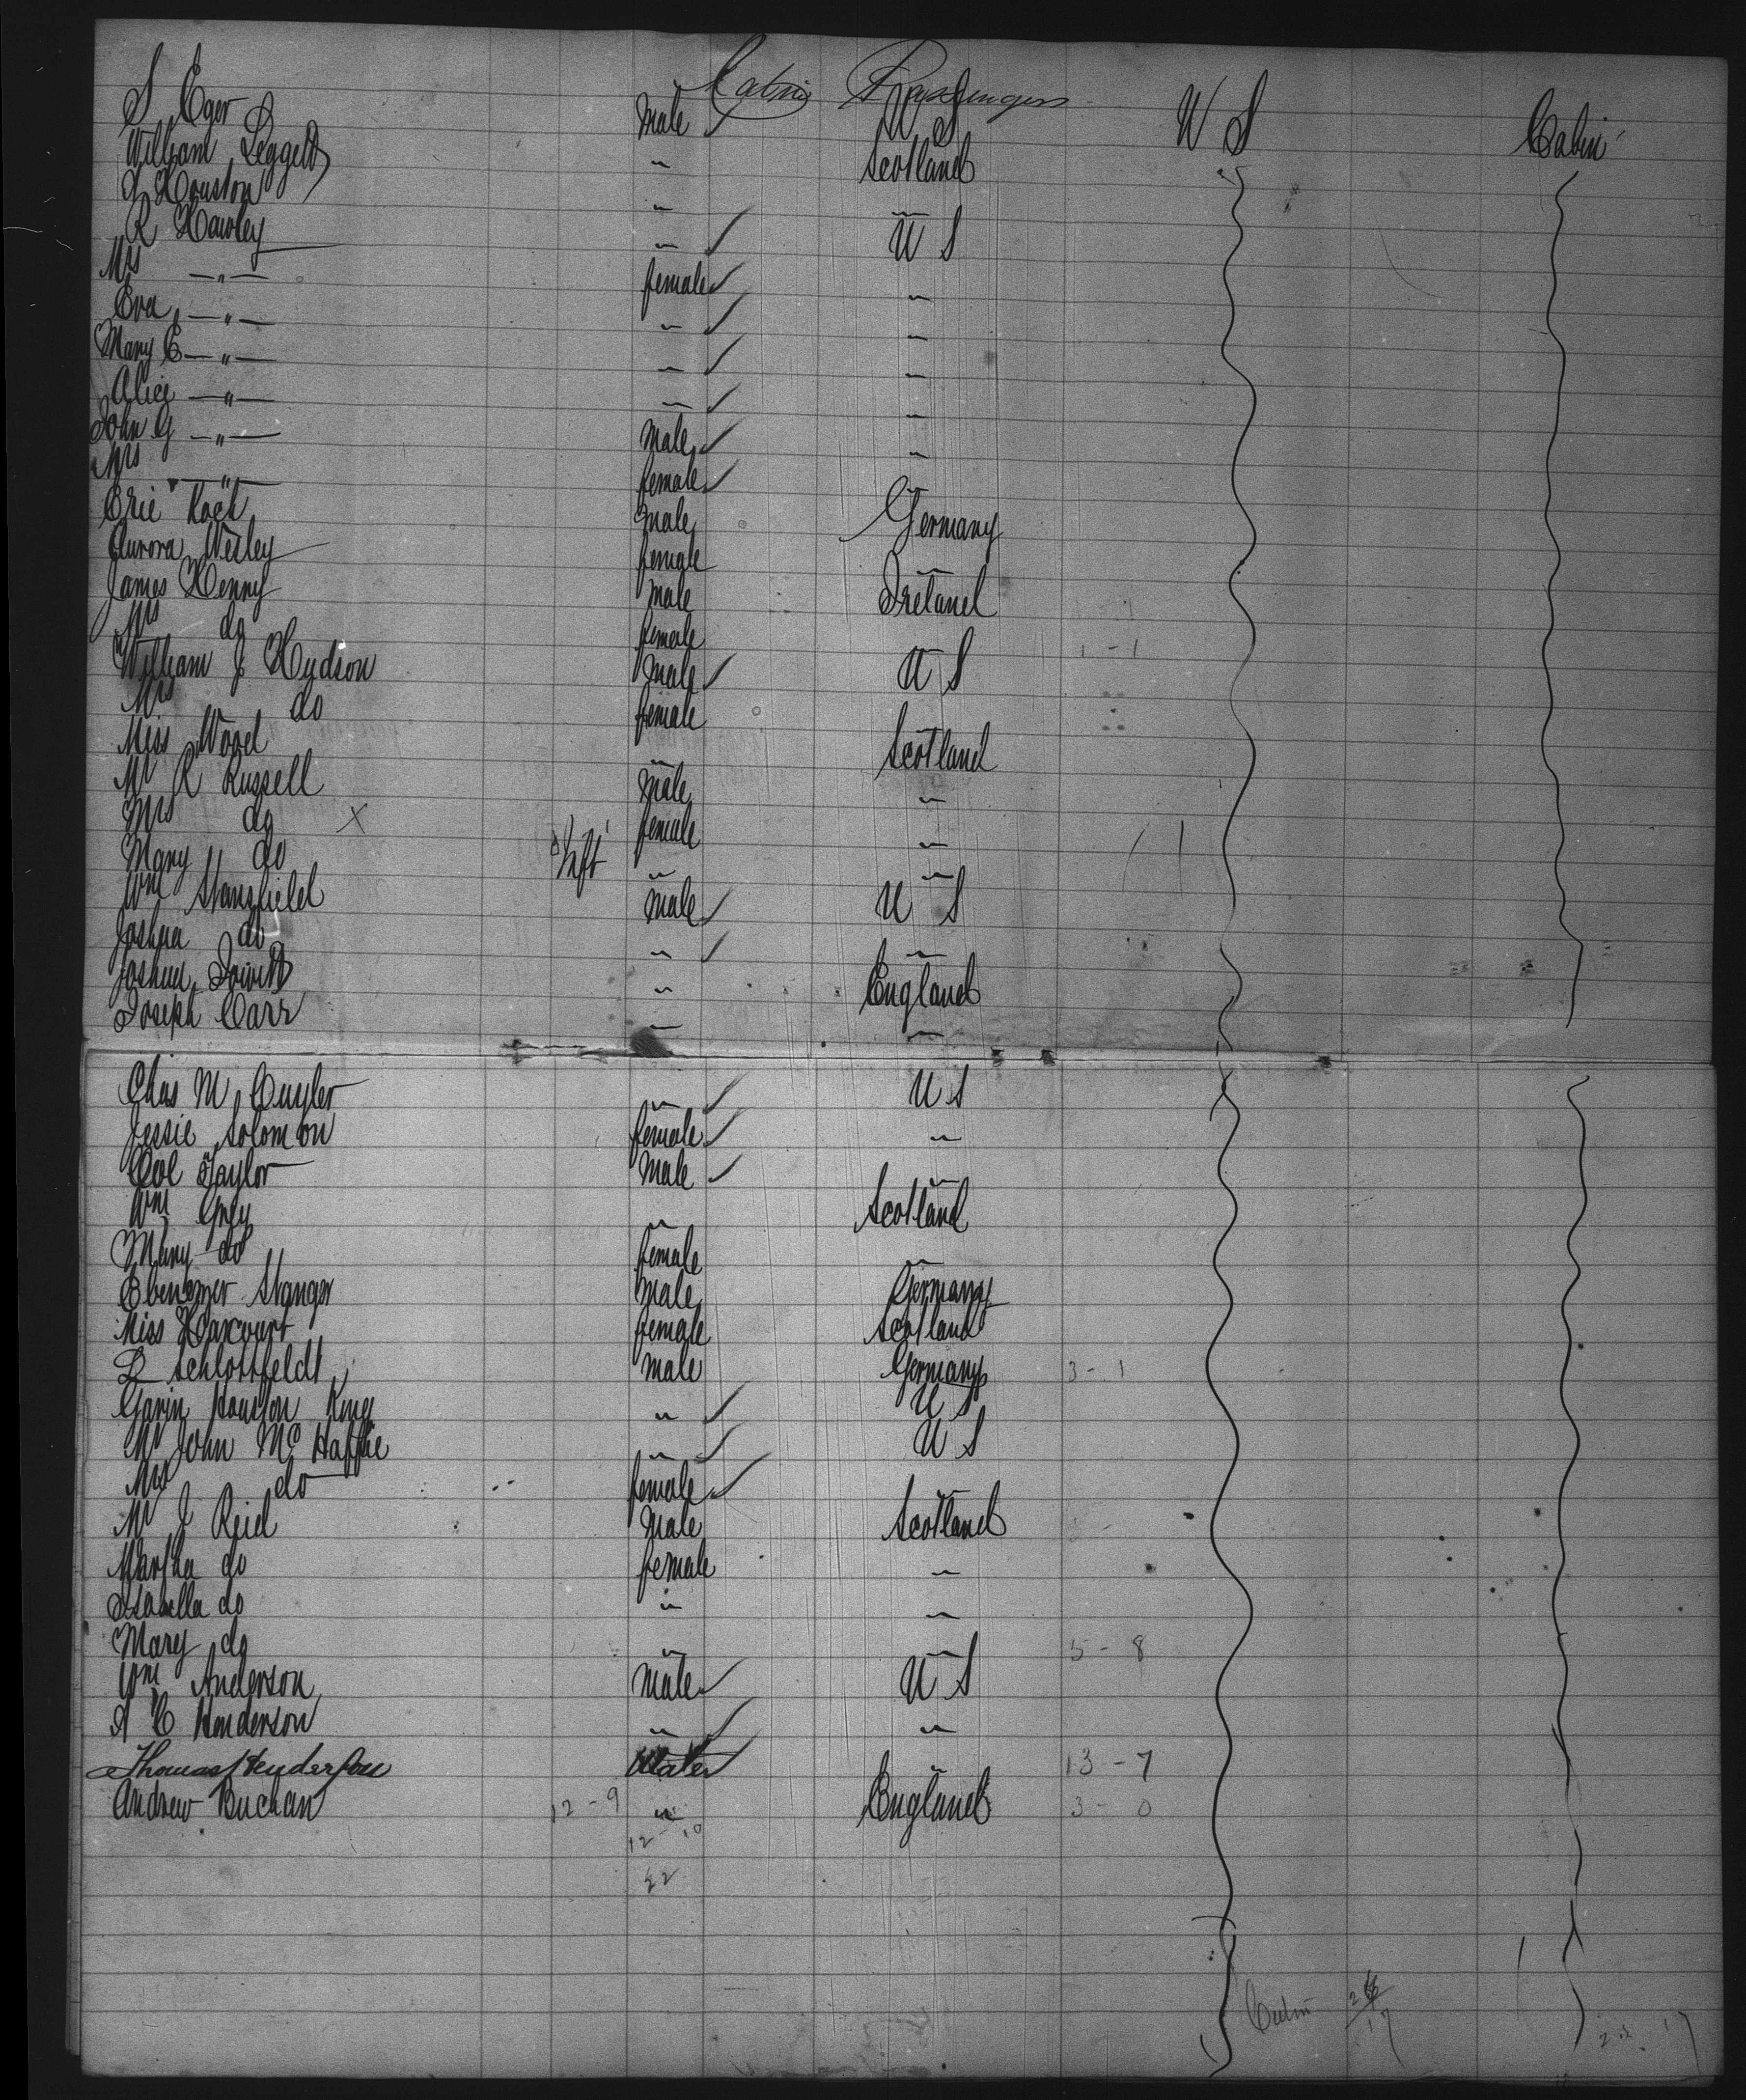 Cabin Passengers
S Eger male U S U S Cabin
William Leggett " Scotland
J Houston " "
R Hawley " U S
Mrs —"— female "
Eva —"— " "
Mary E —"— " "
Alice —"— " "
John G —"— male "
Mrs —"— female "
Eric Koch male Germany
Aurora Wesley female "
James Henry male Ireland
Mrs do female "
William J Hudson male U S
Mrs do female "
Miss Wood " Scotland
Mr R Russell male "
Mrs do X female "
Mary do " "
Wm Stansfield male U S
Joshua do " "
Joshua " England
Joseph Carr " "
Chas M Cuyler " U S
Jessie Solomon female "
Col Taylor male "
Wm Grey " Scotland
Mary do female "
Ebenezer Stanger male Germany
Miss Harcourt female Scotland
L Schlottfeldt male Germany 3 - 1
Gavin Houston King " U S
Mr John Mc Haffie " U S
Mrs do female "
Mr J Reid male Scotland
Martha do female "
Isabella do " "
Mary do " " 5 - 8
Wm Anderson male U S
A C Henderson " "
Thomas Henderson " 13 - 7
Andrew Buchan 12 - 9 " England 3 - 0
12 - 10
£2
Cabin
17